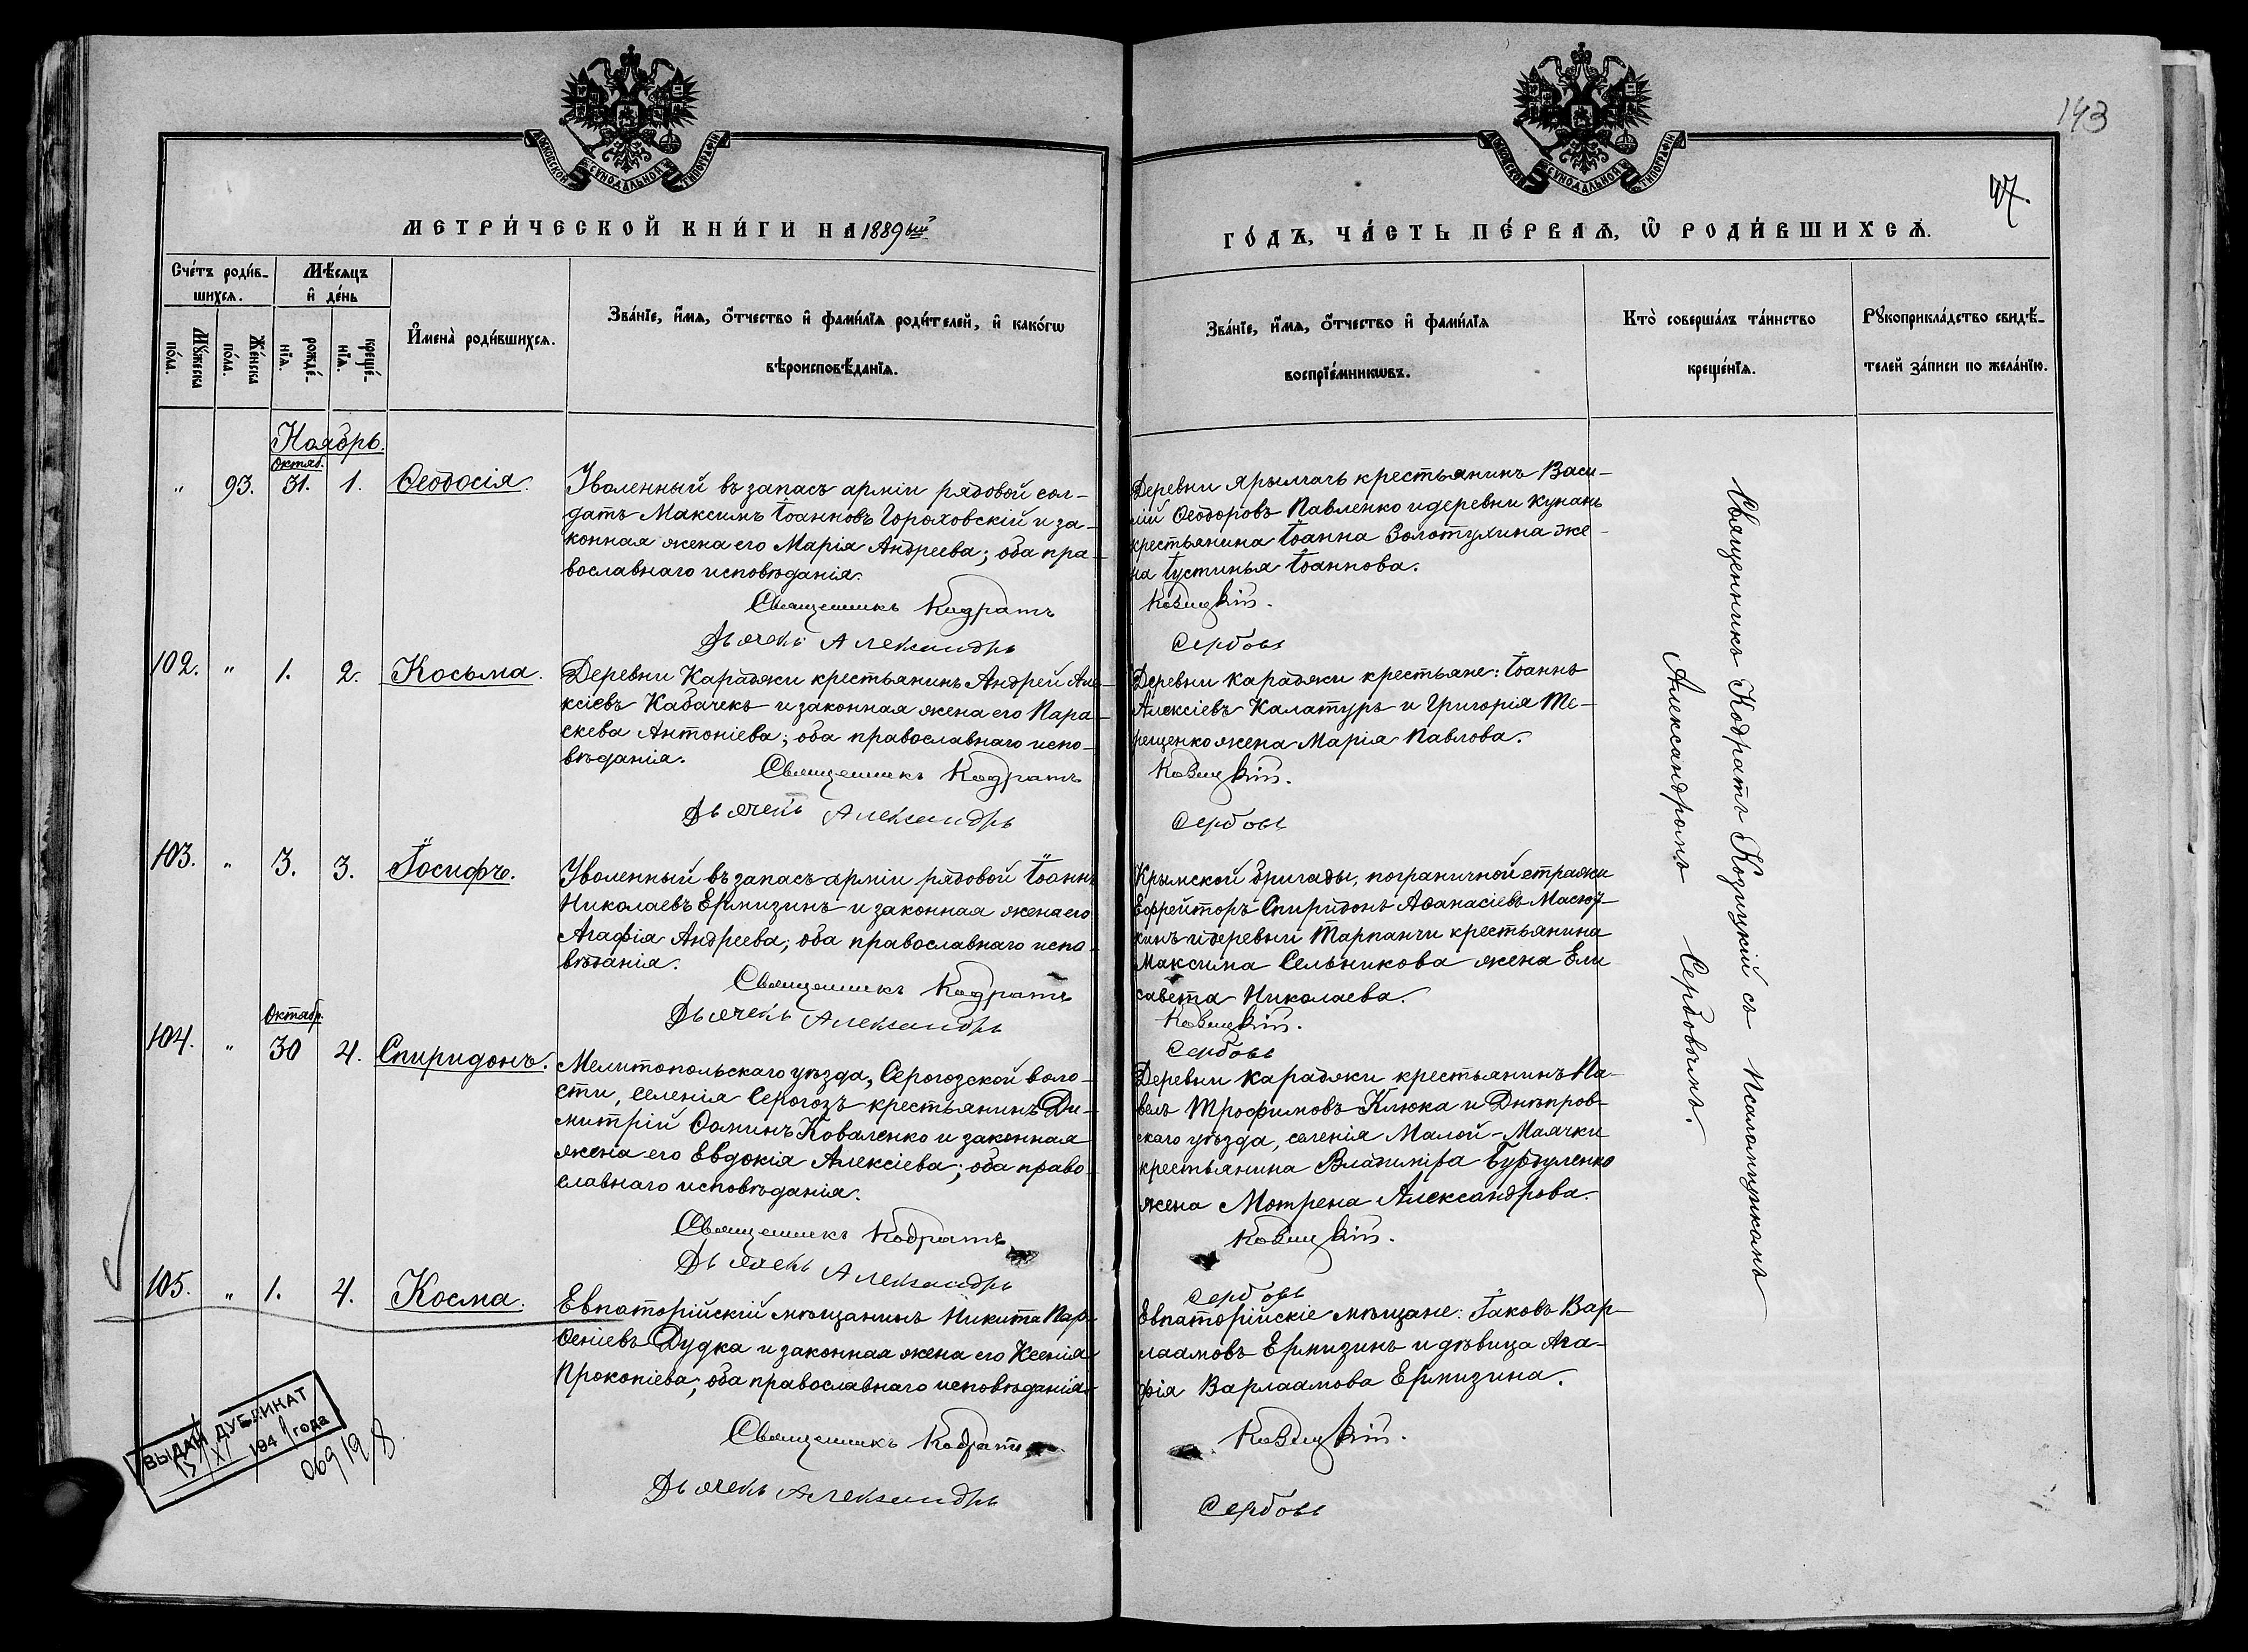 143
47.
МОСКОВСКОЙ СѴНОДАЛЬНОЙ ТИПОГРАФІИ
МОСКОВСКОЙ СѴНОДАЛЬНОЙ ТИПОГРАФІИ
МЕТРИ́ЧЕСКОЙ КНИ́ГИ НА 1889ый
ГО́ДЪ, ЧА́СТЬ ПЕ́РВАѦ, Ѽ РОДИ́ВШИХСѦ.
Сче́тъ роди́в-
шихсѧ.
Мѣ́сѧцъ
и҆ де́нь
Мꙋ́жеска по́ла.
Же́нска по́ла.
рожде́-нїѧ.
креще́-нїѧ.
И҆мена̀ роди́вшихсѧ.
Зва́нїе, и҆́мѧ, ѻ҆́тчество и҆ фами́лїѧ роди́телей, и҆ како́гѡ
вѣроисповѣ́данїѧ.
Зва́нїе, и҆́мѧ, ѻ҆́тчество и҆ фами́лїѧ
воспрїе́мникѡвъ.
Кто̀ соверша́лъ та́инство
креще́нїѧ.
Рꙋкоприкла́дство свидѣ́-
телей за́писи по жела́нїю.
Ноябрь.
Октяб.
" 93. 31. 1. Ѳеодосія.
Уволенный въ запасъ арміи рядовой сол-
датъ Максимъ Іоанновъ Гороховскій и за-
конная жена его Марія Андреева; оба пра-
вославнаго исповѣданія.
Священникъ Кодратъ
Дьячекъ Александръ
Деревни Ярылгачъ крестьянинъ Васи-
лій Ѳеодоровъ Павленко и деревни Кунань
крестьянина Іоанна Золотухина же-
на Іустинья Іоаннова.
Козицкій.
Сербовъ
102. " 1. 2. Косьма.
Деревни Караджи крестьянинъ Андрей Але-
ксіевъ Кабачекъ и законная жена его Пара-
скева Антоніева; оба православнаго испо-
вѣданія.
Священникъ Кодратъ
Дьячекъ Александръ
Деревни Караджи крестьяне: Іоаннъ
Алексіевъ Калатуръ и Григорія Те-
рещенко жена Марія Павлова.
Козицкій.
Сербовъ
103. " 3. 3. Іосифъ.
Уволенный въ запасъ арміи рядовой Іоаннъ
Николаевъ Ермизинъ и законная жена его
Агафія Андреева; оба православнаго испо-
вѣданія.
Священникъ Кодратъ
Дьячекъ Александръ
Крымской бригады, пограничной стражи
Ефрейторъ Спиридонъ Аѳанасіевъ
и деревни Тарпанчи крестьянина
Максима Сельникова жена Ели
савета Николаева.
Козицкій.
Сербовъ
Октябр.
104. " 30 4. Спиридонъ.
Мелитопольскаго уѣзда, Серогозской воло-
сти, селенія Серогозъ крестьянинъ Ди-
митрій Ѳоминъ Коваленко и законная
жена его Евдокія Алексіева; оба право-
славнаго исповѣданія.
Священникъ Кодратъ
Дьячекъ Александръ
Деревни Караджи крестьянинъ Па-
велъ Трофимовъ Клюка и Днѣпров-
скаго уѣзда, селенія Малой-Маячки
крестьянина Владиміра Бурбуленко
жена Мотрена Александрова.
Козицкій.
Сербовъ
105. " 1. 4. Косма.
Евпаторійскій мѣщанинъ Никита Пар-
ѳеніевъ Дудка и законная жена его Ксенія
Прокопіева; оба православнаго исповѣданія.
Священникъ Кодратъ
Дьячекъ Александръ
Евпаторійскіе мѣщане: Іаковъ Вар-
лаамовъ Ермизинъ и дѣвица Ага-
фія Варлаамова Ермизина.
Козицкій.
Сербовъ
Священникъ Кодратъ Козицкій съ Псаломщикомъ
Александромъ Сербовымъ.
ВЫДАН ДУБЛИКАТ
15/XI 1941 года
069198